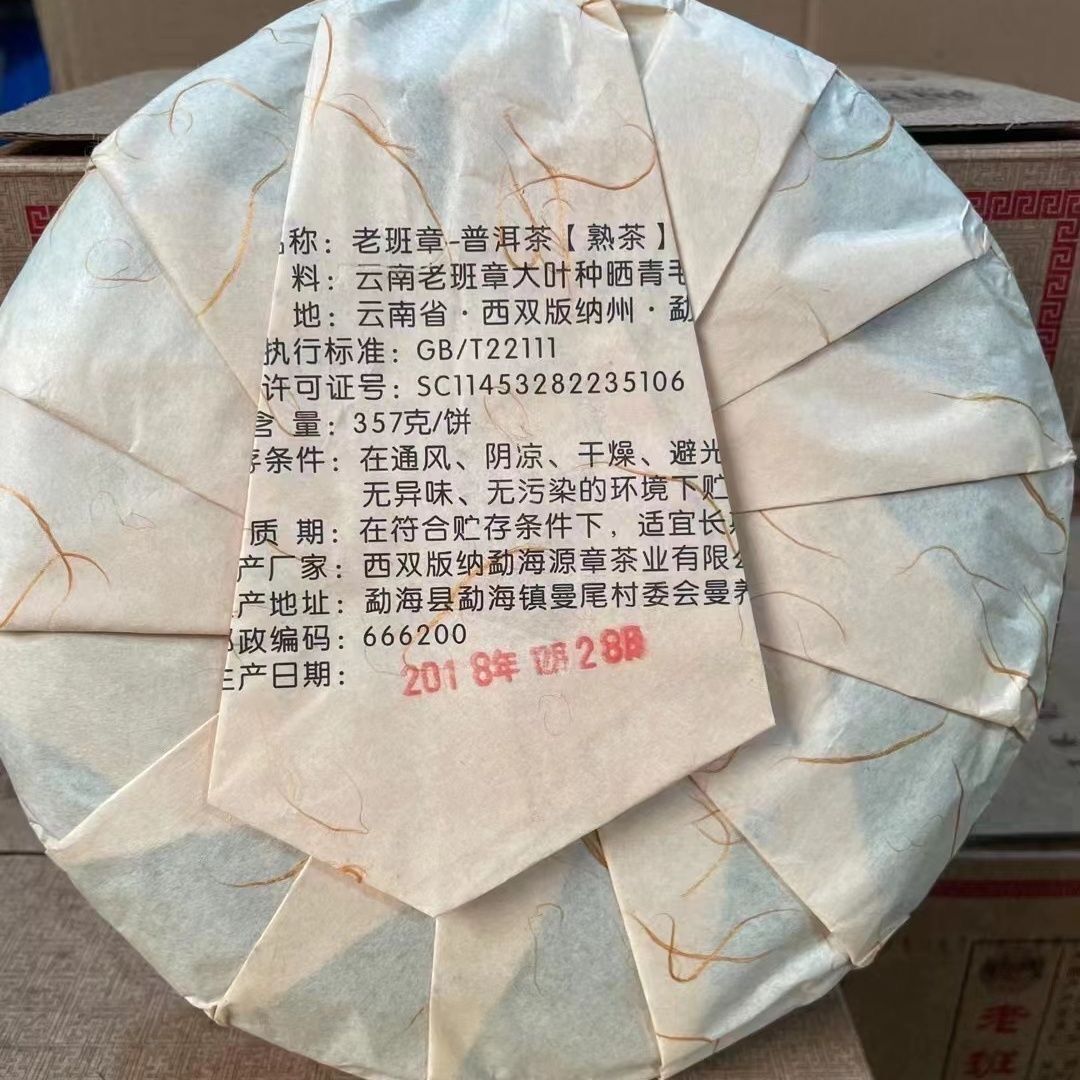 称：老班章-普洱茶【熟茶】
料：云南老班章大叶种晒青毛
地：云南省·西双版纳州·勐
执行标准：GB/T22111
许可证号：SC11453282235106
含 量：357克/饼
存条件：在通风、阴凉、干燥、避光
无异味、无污染的环境下贮
质 期：在符合贮存条件下，适宜长期
产厂家：西双版纳勐海源章茶业有限公
产地址：勐海县勐海镇曼尾村委会曼养
邮政编码：666200
生产日期：
2018年 月28日
老班